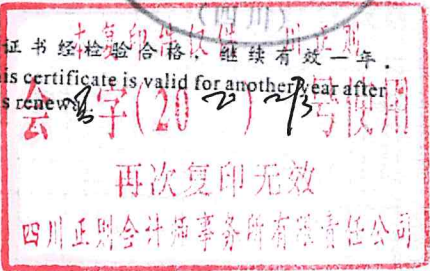 (四川)
本复印件仅供 川正则
证书经检验合格，继续有效一年.
is certificate is valid for another year after
s renewal.
会 字(20 20) 号使用
再次复印无效
四川正则会计师事务所有限责任公司